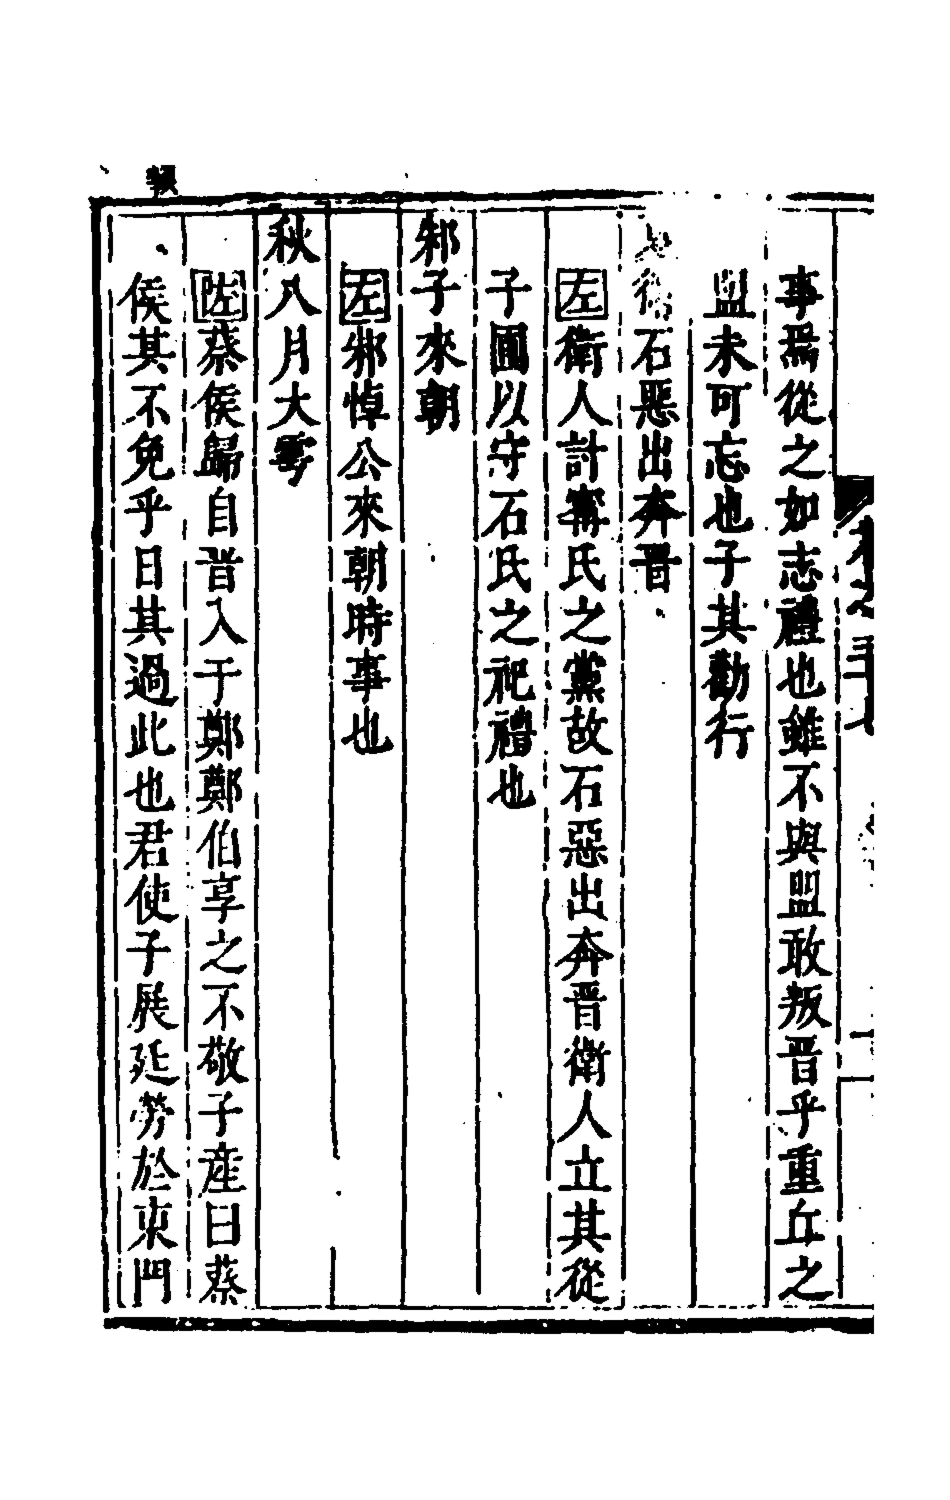 事焉從之如志禮也雖不與盟敢叛晋乎重丘之
盟未可忘也子其勸行
衛石惡出奔晋
左衛人討甯氏之黨故石惡出奔晋衛人立其從
子圃以守石氏之祀禮也
邾子來朝
左邾悼公來朝時事也
秋八月大雩
左蔡侯歸自晋入于鄭鄭伯享之不敬子產曰蔡
侯其不免乎日其過此也君使子展廷勞於東門